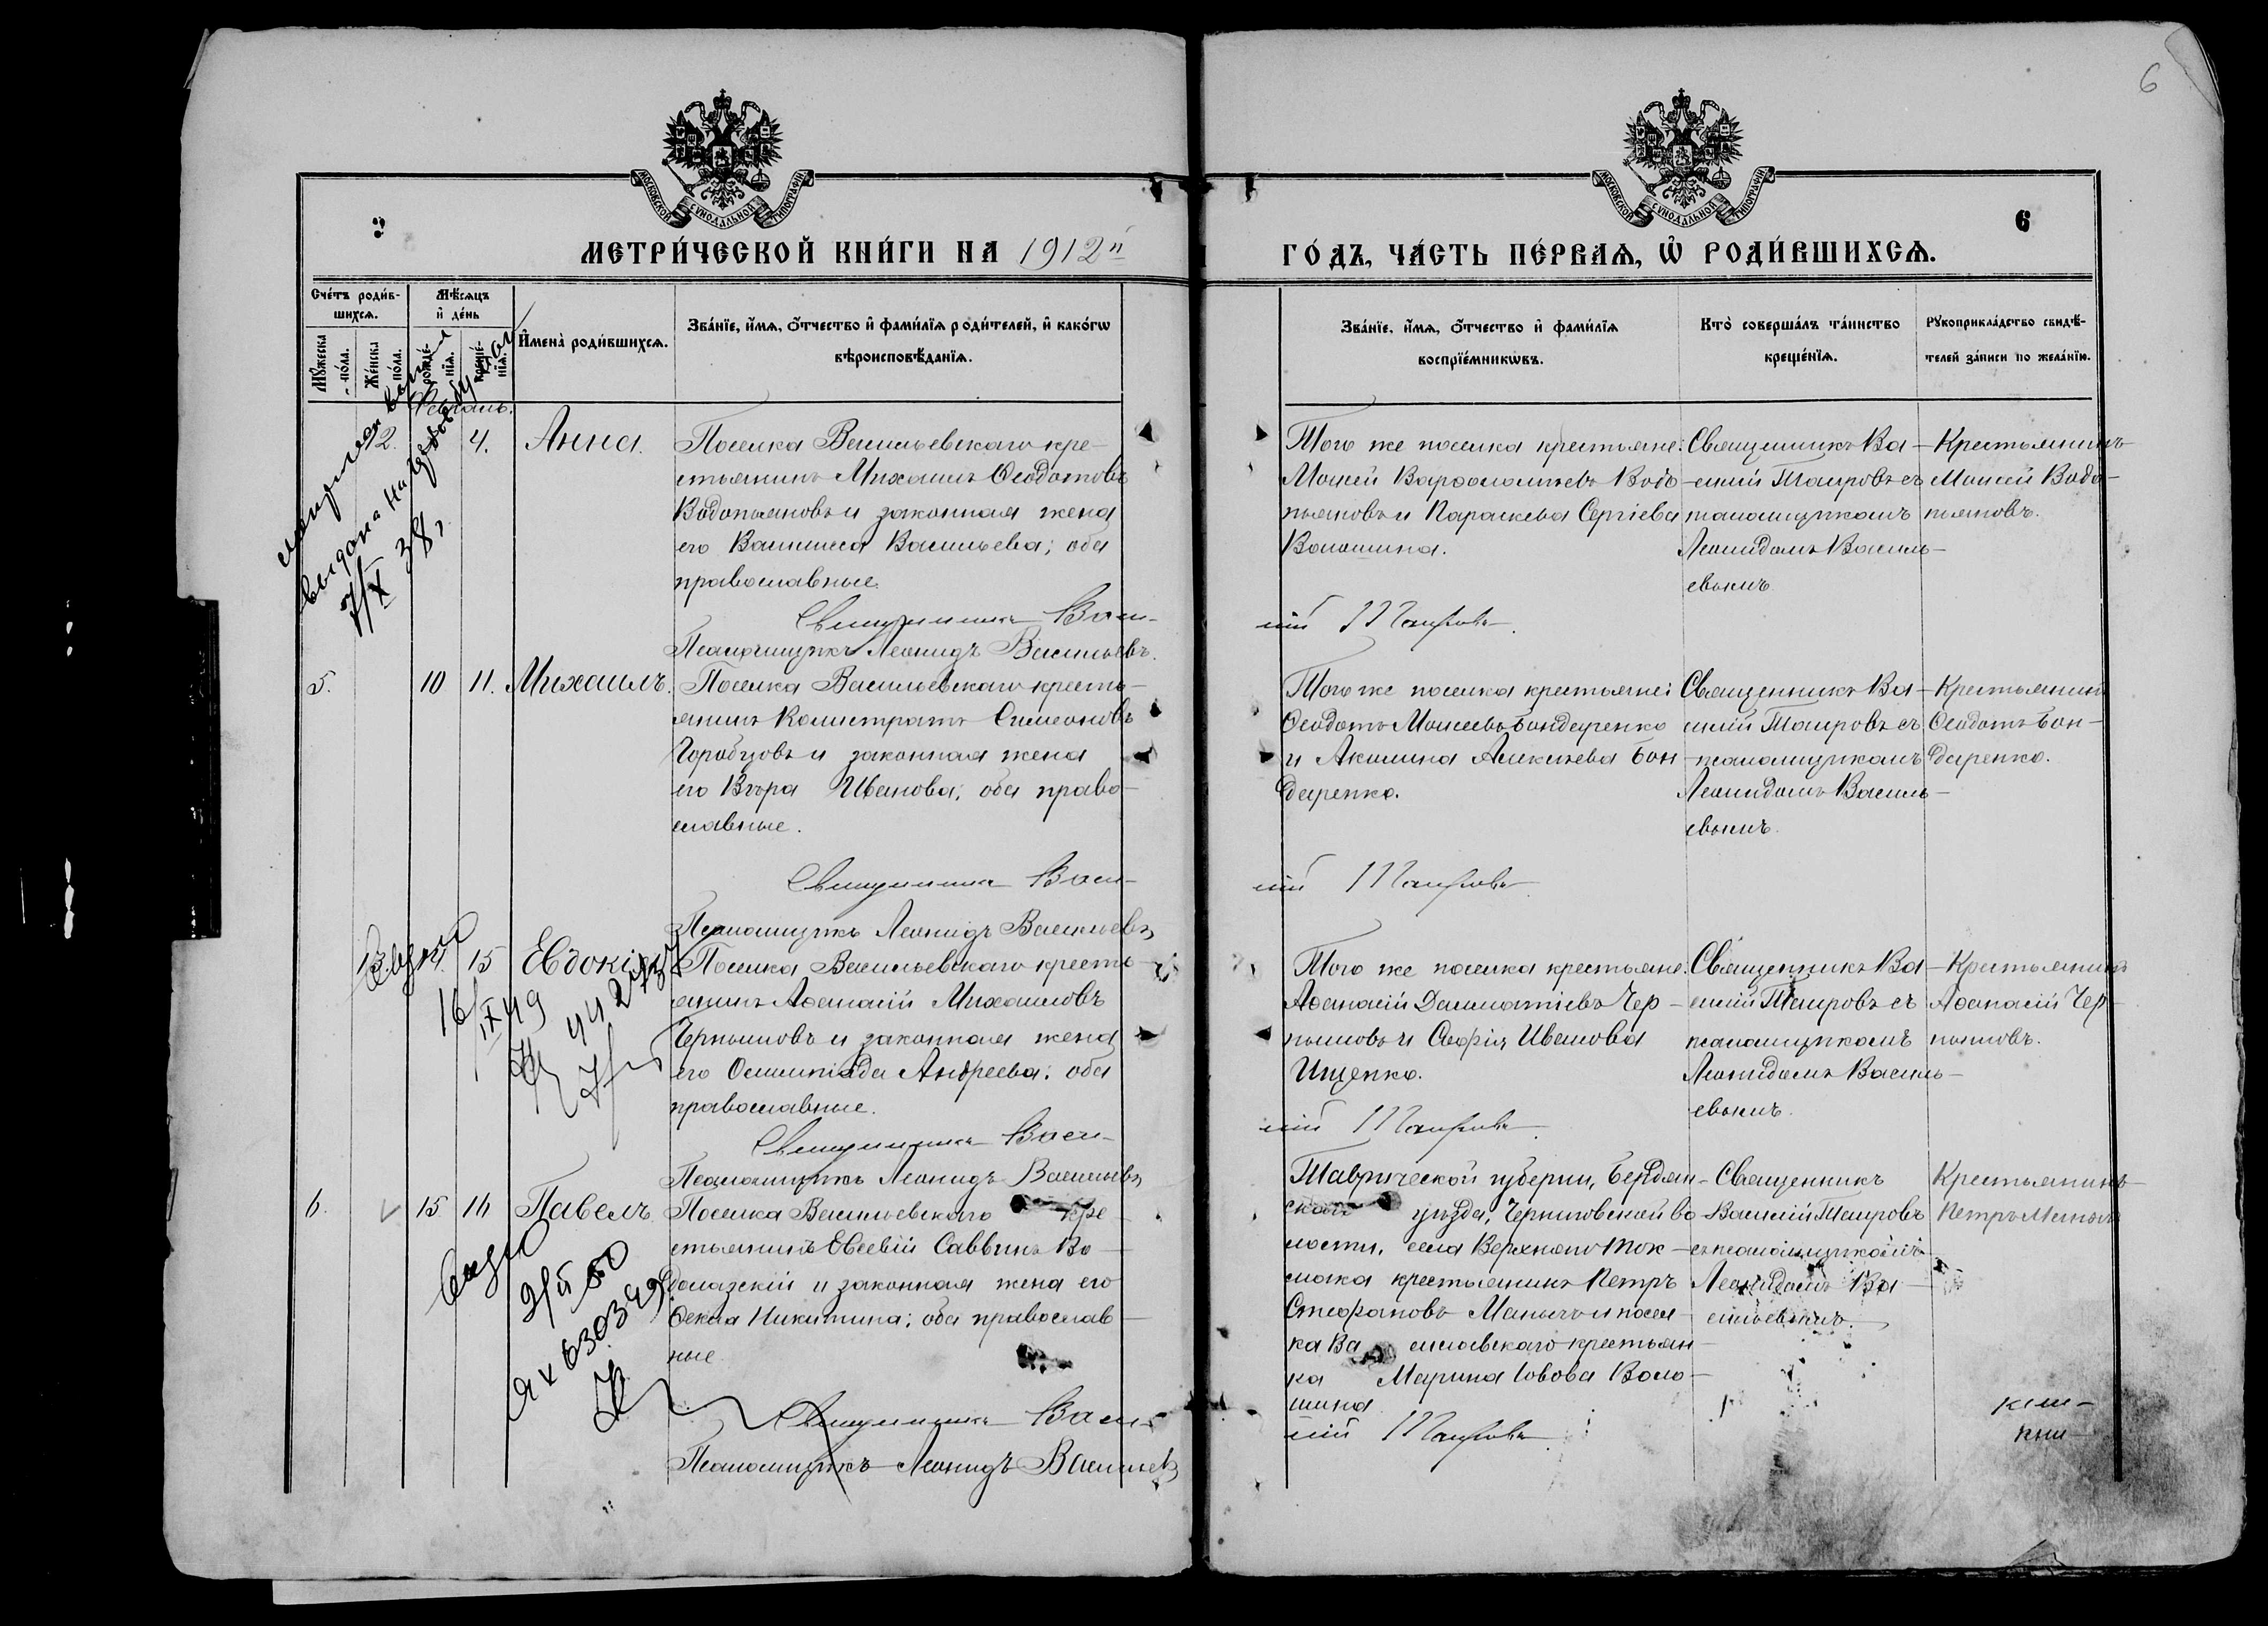 6
МОСКОВСКОЙ СѴНОДАЛЬНОЙ ТИПОГРАФІИ
МОСКОВСКОЙ СѴНОДАЛЬНОЙ ТИПОГРАФІИ
6
МЕТРИ́ЧЕСКОЙ КНИ́ГИ НА 1912й
ГО́ДЪ, ЧА́СТЬ ПЕ́РВАѦ, Ѡ҆ РОДИ́ВШИХСѦ.
Сче́тъ роди́в-
шихсѧ.
Мꙋ́жеска
по́ла.
Же́нска
по́ла.
Мѣ́сѧцъ
и҆ де́нь
рожде́-
нїѧ.
креще́-
нїѧ.
И҆мена̀ роди́вшихсѧ.
Зва́нїе, и҆́мѧ, ѻ҆́тчество и҆ фами́лїѧ роди́телей, и҆ како́гѡ
вѣроисповѣ́данїѧ.
Зва́нїе, и҆́мѧ, ѻ҆́тчество и҆ фами́лїѧ
воспрїе́мникѡвъ.
Кто̀ соверша́лъ та́инство
креще́нїѧ.
Рꙋкоприкла́дство свидѣ́-
телей за́писи по жела́нїю.
Февраль.
12.
4.
Анна.
Поселка Васильевскаго кре-
стьянинъ Михаилъ Ѳеодотовъ
Водопьяновъ и законная жена
его Василиса Васильева; оба
православные.
Священникъ Васи-
лій Таировъ.
Псаломщикъ Леонидъ Васильевъ.
Того же поселка крестьяне:
Моисей Варѳоломеевъ Водо-
пьяновъ и Параскева Сергіева
Волошина.
Священникъ Ва-
силій Таировъ съ
псаломщикомъ
Леонидомъ Василь-
евымъ.
Крестьянинъ
Моисей Водо-
пьяновъ.
выдана на
7/X 38 г.
5.
10
11.
Михаилъ.
Поселка Васильевскаго кресть-
янинъ Калистратъ Симеоновъ
Горобцовъ и законная жена
его Вѣра Иванова; оба право-
славные.
Священникъ Васи-
лій Таировъ
Псаломщикъ Леонидъ Васильевъ
Того же поселка крестьяне:
Ѳеодотъ Моисеевъ Бондаренко
и Акилина Алексіева Бон-
даренко.
Священникъ Ва-
силій Таировъ съ
псаломщикомъ
Леонидомъ Василь-
евымъ.
Крестьянинъ
Ѳеодотъ Бон-
даренко.
13.
15
Евдокія
16/IX 49
Поселка Васильевскаго кресть-
янинъ Аѳанасій Михаиловъ
Чернышовъ и законная жена
его Олимпіада Андреева; оба
православные.
Священникъ Васи-
лій Таировъ.
Псаломщикъ Леонидъ Васильевъ
Того же поселка крестьяне:
Аѳанасій Далматіевъ Чер-
нышовъ и Софія Иванова
Ищенко.
Священникъ Ва-
силій Таировъ съ
псаломщикомъ
Леонидомъ Василь-
евымъ.
Крестьянинъ
Аѳанасій Чер-
нышовъ.
6.
15
16
Павелъ
630349
Поселка Васильевскаго кре-
стьянинъ Евсевій Саввинъ Во-
долазскій и законная жена его
Ѳекла Никитина; оба православ-
ные
Священникъ Васи-
лій Таировъ.
Псаломщикъ Леонидъ Васильевъ
Таврической губерніи, Бердян-
скаго уѣзда, Черниговской во-
лости, села Верхняго Ток-
мака крестьянинъ Петръ
Стефановъ и посел-
ка Ва сильевскаго крестьян-
ка Марина Іовова Воло-
шина.
Священникъ
Василій Таировъ
съ псаломщикомъ
Леонидомъ Ва-
сильевымъ.
Крестьянинъ
Петръ